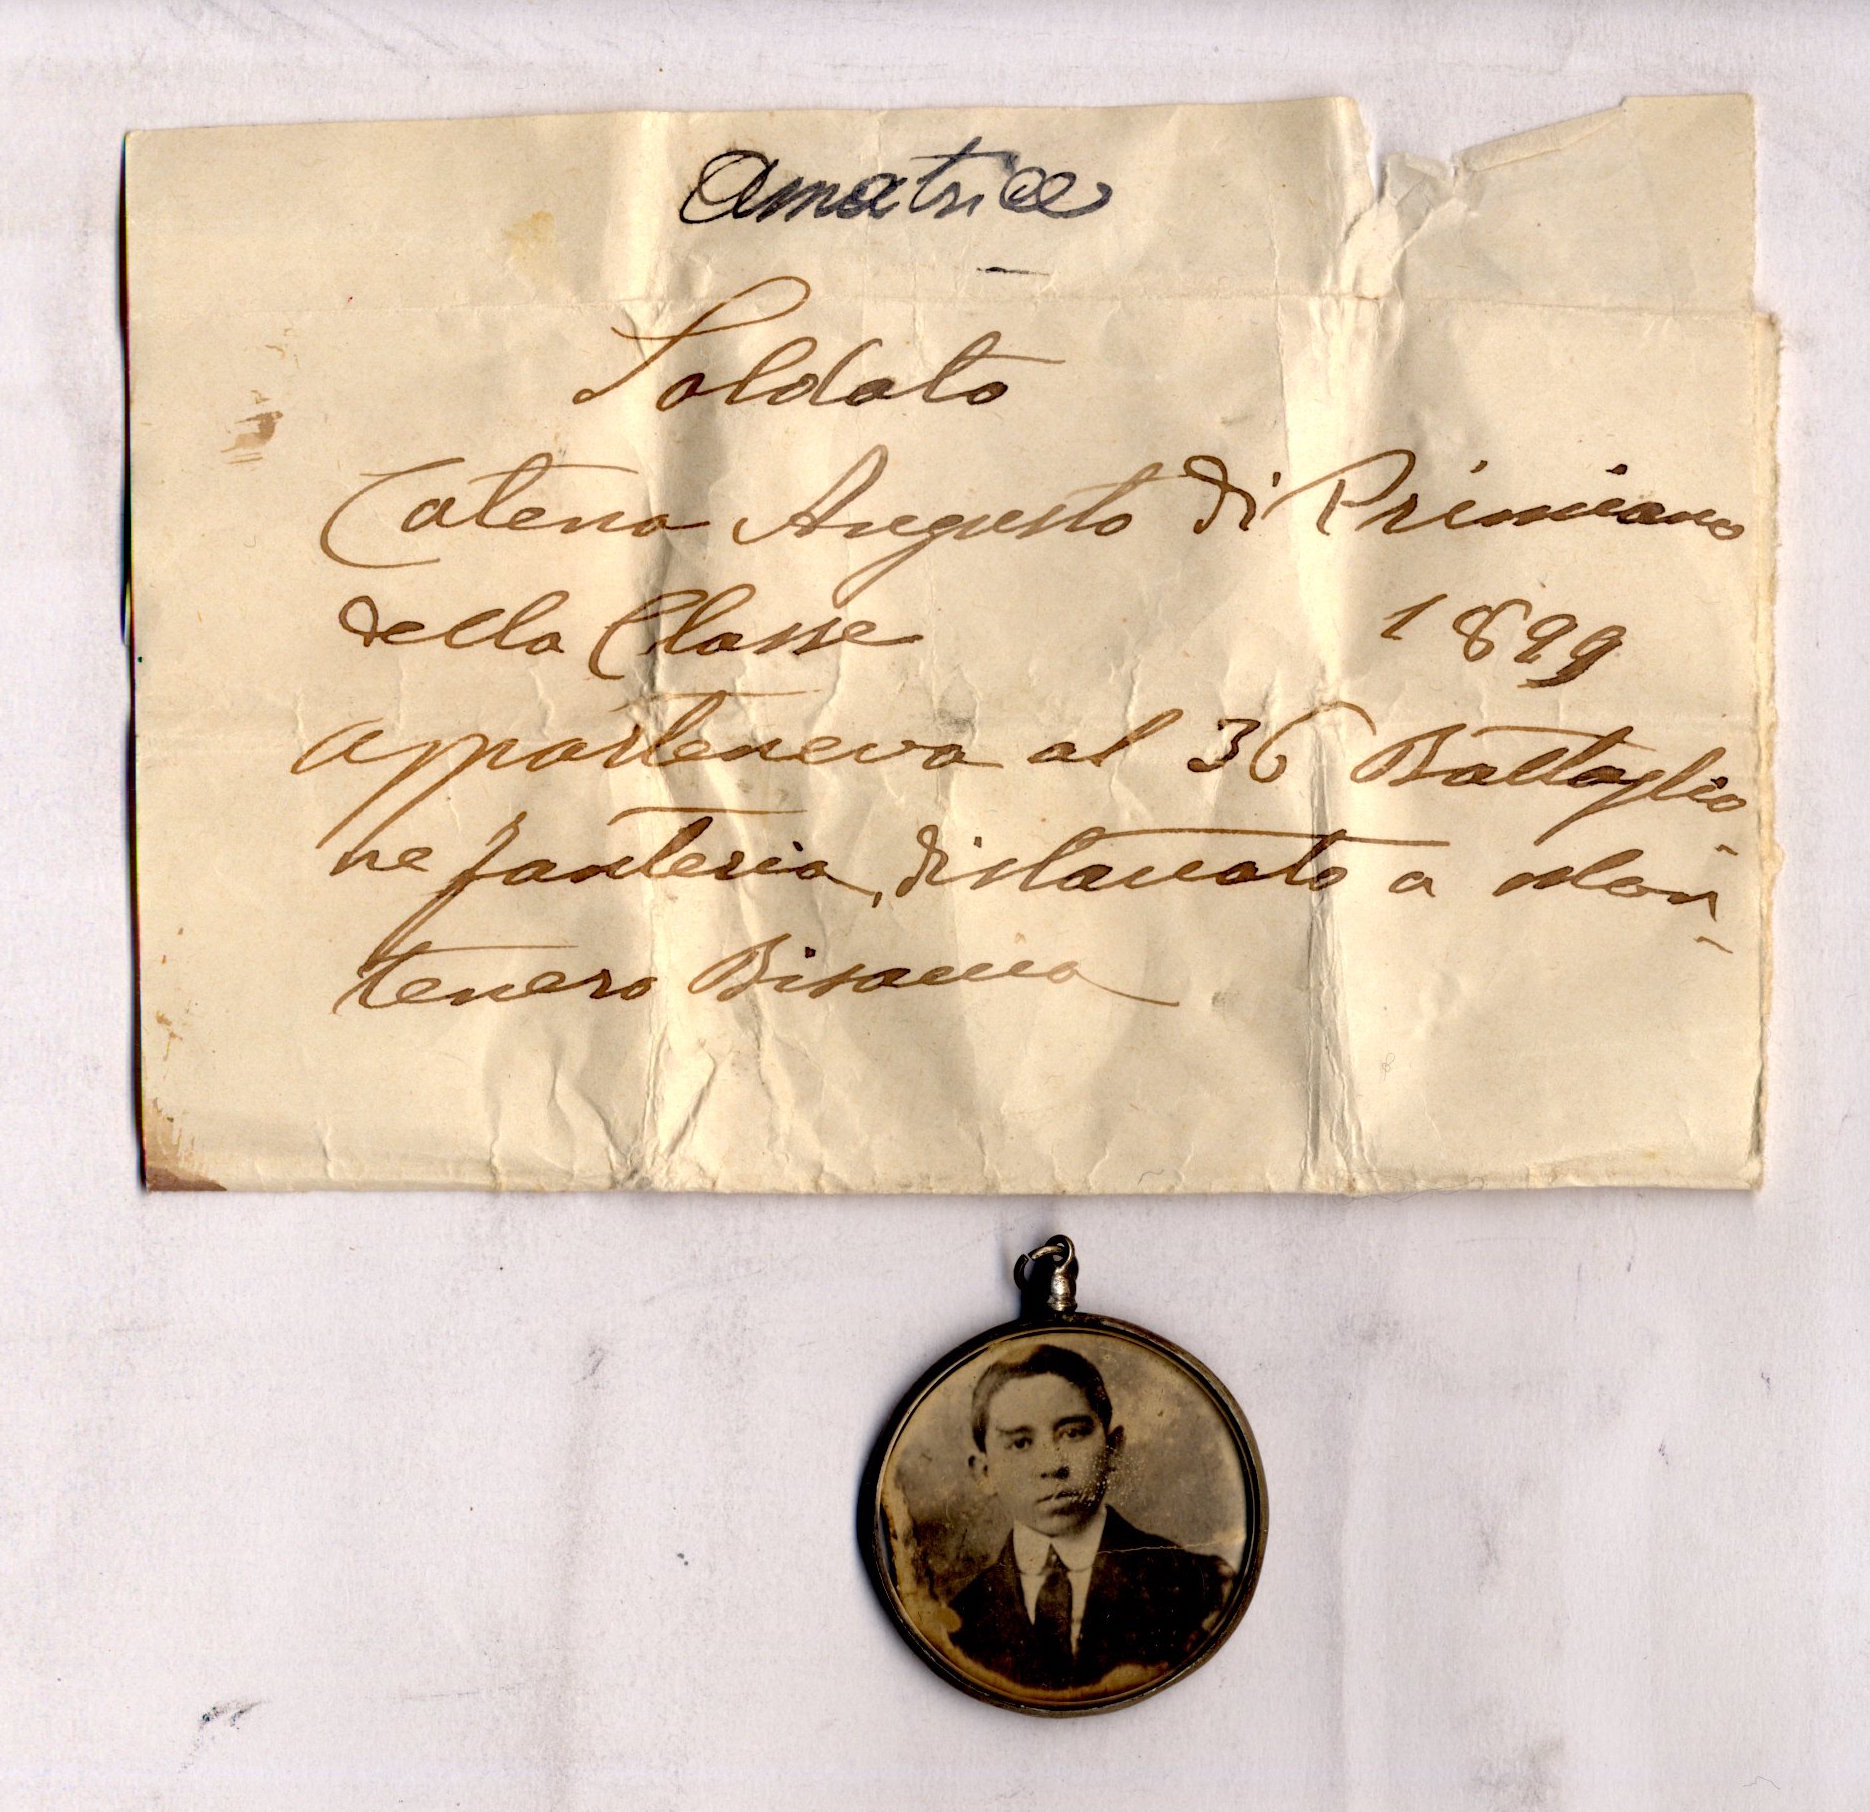 Amatrice
Soldato
Catena Augusto di Primiano
della Classe 1899
apparteneva al 36 Battaglio-
ne fanteria, distaccato a Mon-
tenero Bisaccia